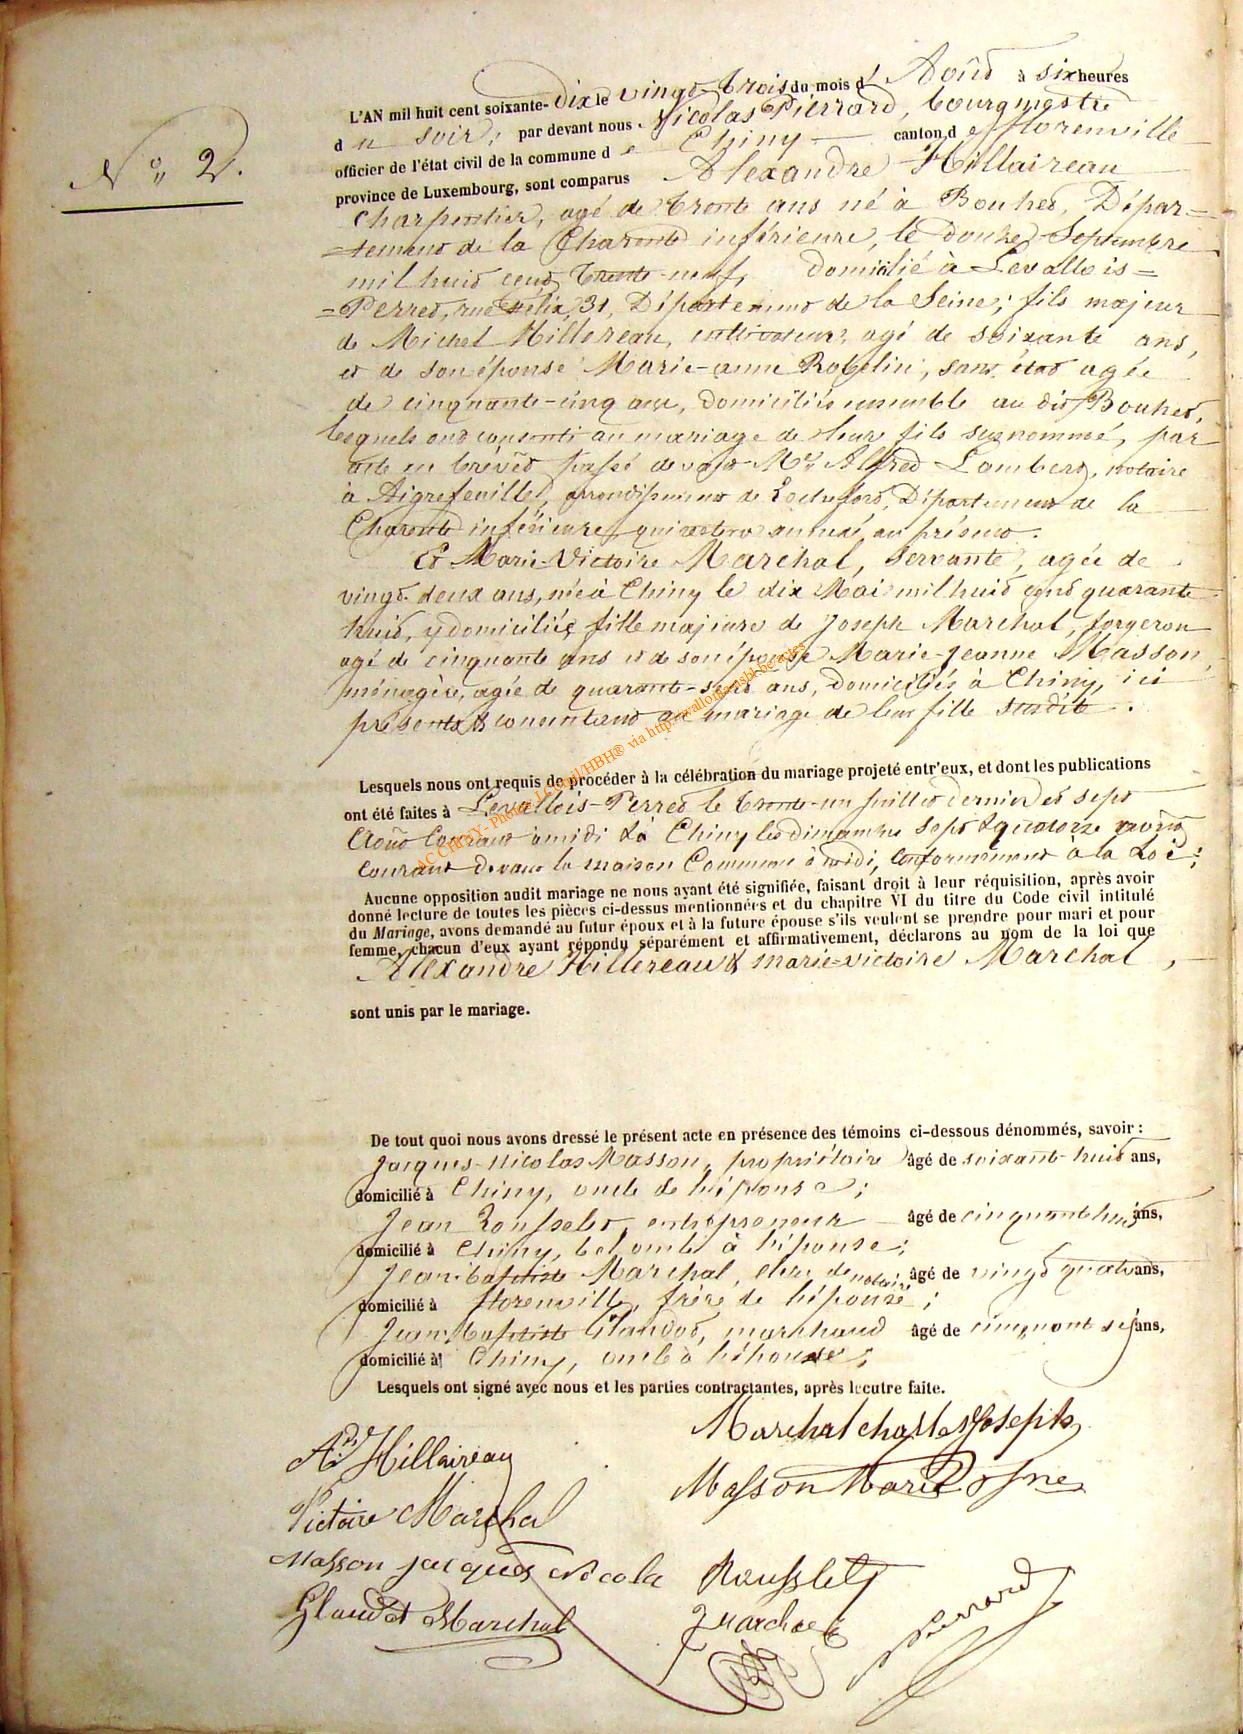 N° 2.
L'AN mil huit cent soixante-dix le vingt-trois du mois d' Août à six heures
du soir, par devant nous Nicolas Pierrard, bourgmestre
officier de l'état civil de la commune de Chiny canton de Florenville
province de Luxembourg, sont comparus Alexandre Hillaireau
charpentier, agé de trente ans né à Bouhet, Dépar=
=tement de la Charente inférieure, le douze Septembre
mil huit cent trente-neuf, domicilié à Levallois=
=Perret, rue 31, Département de la Seine; fils majeur
de Michel Hillereau, cultivateur, agé de soixante ans,
et de son épouse Marie-anne Robelin, sans état agée
de cinquante-cinq ans, domiciliés ensemble au dit Bouhet,
lesquels ont consenti au mariage de leur fils susnommé, par
acte en brévet passé devant Mr Alfred Lambert, notaire
à Aigrefeuille, arrondissement de Rochefort, Département de la
Charente inférieure, qui restera annexé au présent.
Et Marie-Victoire Marchal, servante, agée de
vingt-deux ans, née à Chiny le dix Mai mil huit cent quarante
huit, y domiciliée fille majeure de Joseph Marchal, forgeron
agé de cinquante ans et de son épouse Marie-Jeanne Masson,
ménagère, agée de quarante-sept ans, domiciliés à Chiny, ici
présents & consentant au mariage de leur fille susdite.
Lesquels nous ont requis de procéder à la célébration du mariage projeté entr'eux, et dont les publications
ont été faites à Levallois-Perret le trente-un juillet dernier et sept
Août courant à midi & à Chiny les dimanches sept & quatorze août
courant devant la maison Commune à midi, conformément à la Loi;
Aucune opposition audit mariage ne nous ayant été signifiée, faisant droit à leur réquisition, après avoir
donné lecture de toutes les pièces ci-dessus mentionnées et du chapitre VI du titre du Code civil intitulé
du Mariage, avons demandé au futur époux et à la future épouse s'ils veulent se prendre pour mari et pour
femme, chacun d'eux ayant répondu séparément et affirmativement, déclarons au nom de la loi que
Alexandre Hillereau & marie-victoire Marchal,
sont unis par le mariage.
De tout quoi nous avons dressé le présent acte en présence des témoins ci-dessous dénommés, savoir :
Jacques-Nicolas Masson, propriétaire âgé de soixante huit ans,
domicilié à Chiny, oncle de l'épouse;
Jean Rousselet, entrepreneur âgé de cinquante huit ans,
domicilié à Chiny, bel oncle à l'épouse;
Jean-baptiste Marchal, clerc de notaire âgé de vingt quatre ans,
domicilié à Florenville, frère de l'épouse;
Jean-Baptiste Glaudot, marchand âgé de cinquante sept ans,
domicilié à Chiny, oncle à l'épouse;
Lesquels ont signé avec nous et les parties contractantes, après lecutre faite.
Adre Hillaireau
Marchal charles Joseph
Victoire Marchal
Masson Marie
Masson Jacques Nicola
Rousselet
Glaudot Marchal
Marchal
Pierrard
AC CHINY - Photo LLGenil HBH® via http://wallonia.asbl.be/actes